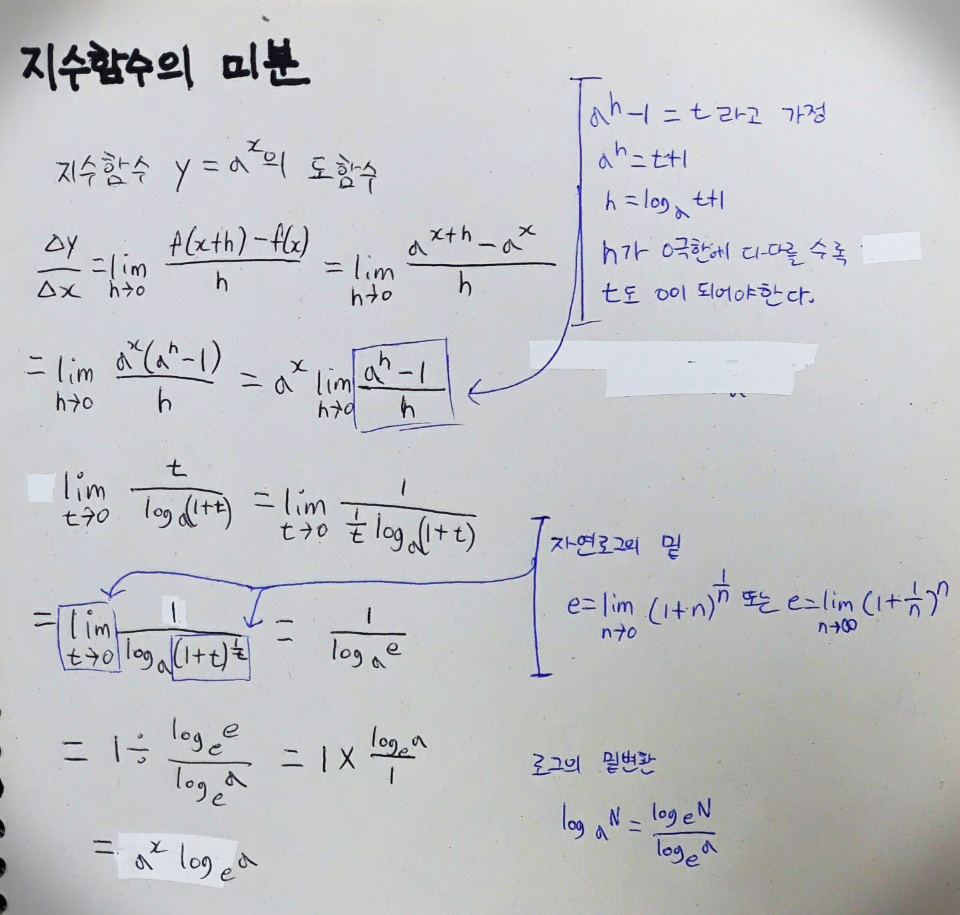 지수함수의 미분
지수함수 y = a^x의 도함수
Δy/Δx = lim_{h→0} (f(x+h) - f(x))/h = lim_{h→0} (a^{x+h} - a^x)/h
= lim_{h→0} a^x(a^h - 1)/h = a^x lim_{h→0} (a^h - 1)/h
a^h - 1 = t 라고 가정
a^h = t+1
h = log_a t+1
h가 0극한에 다다를 수록
t도 0이 되어야한다.
lim_{t→0} t/log_a(1+t) = lim_{t→0} 1/((1/t) log_a(1+t))
= lim_{t→0} 1/log_a(1+t)^{1/t} = 1/log_a e
자연로그의 밑
e = lim_{n→0} (1+n)^{1/n} 또는 e = lim_{n→∞} (1+1/n)^n
= 1 ÷ (log_e e)/(log_e a) = 1 × (log_e a)/1
= a^x log_e a
로그의 밑변환
log_a N = (log_e N)/(log_e a)